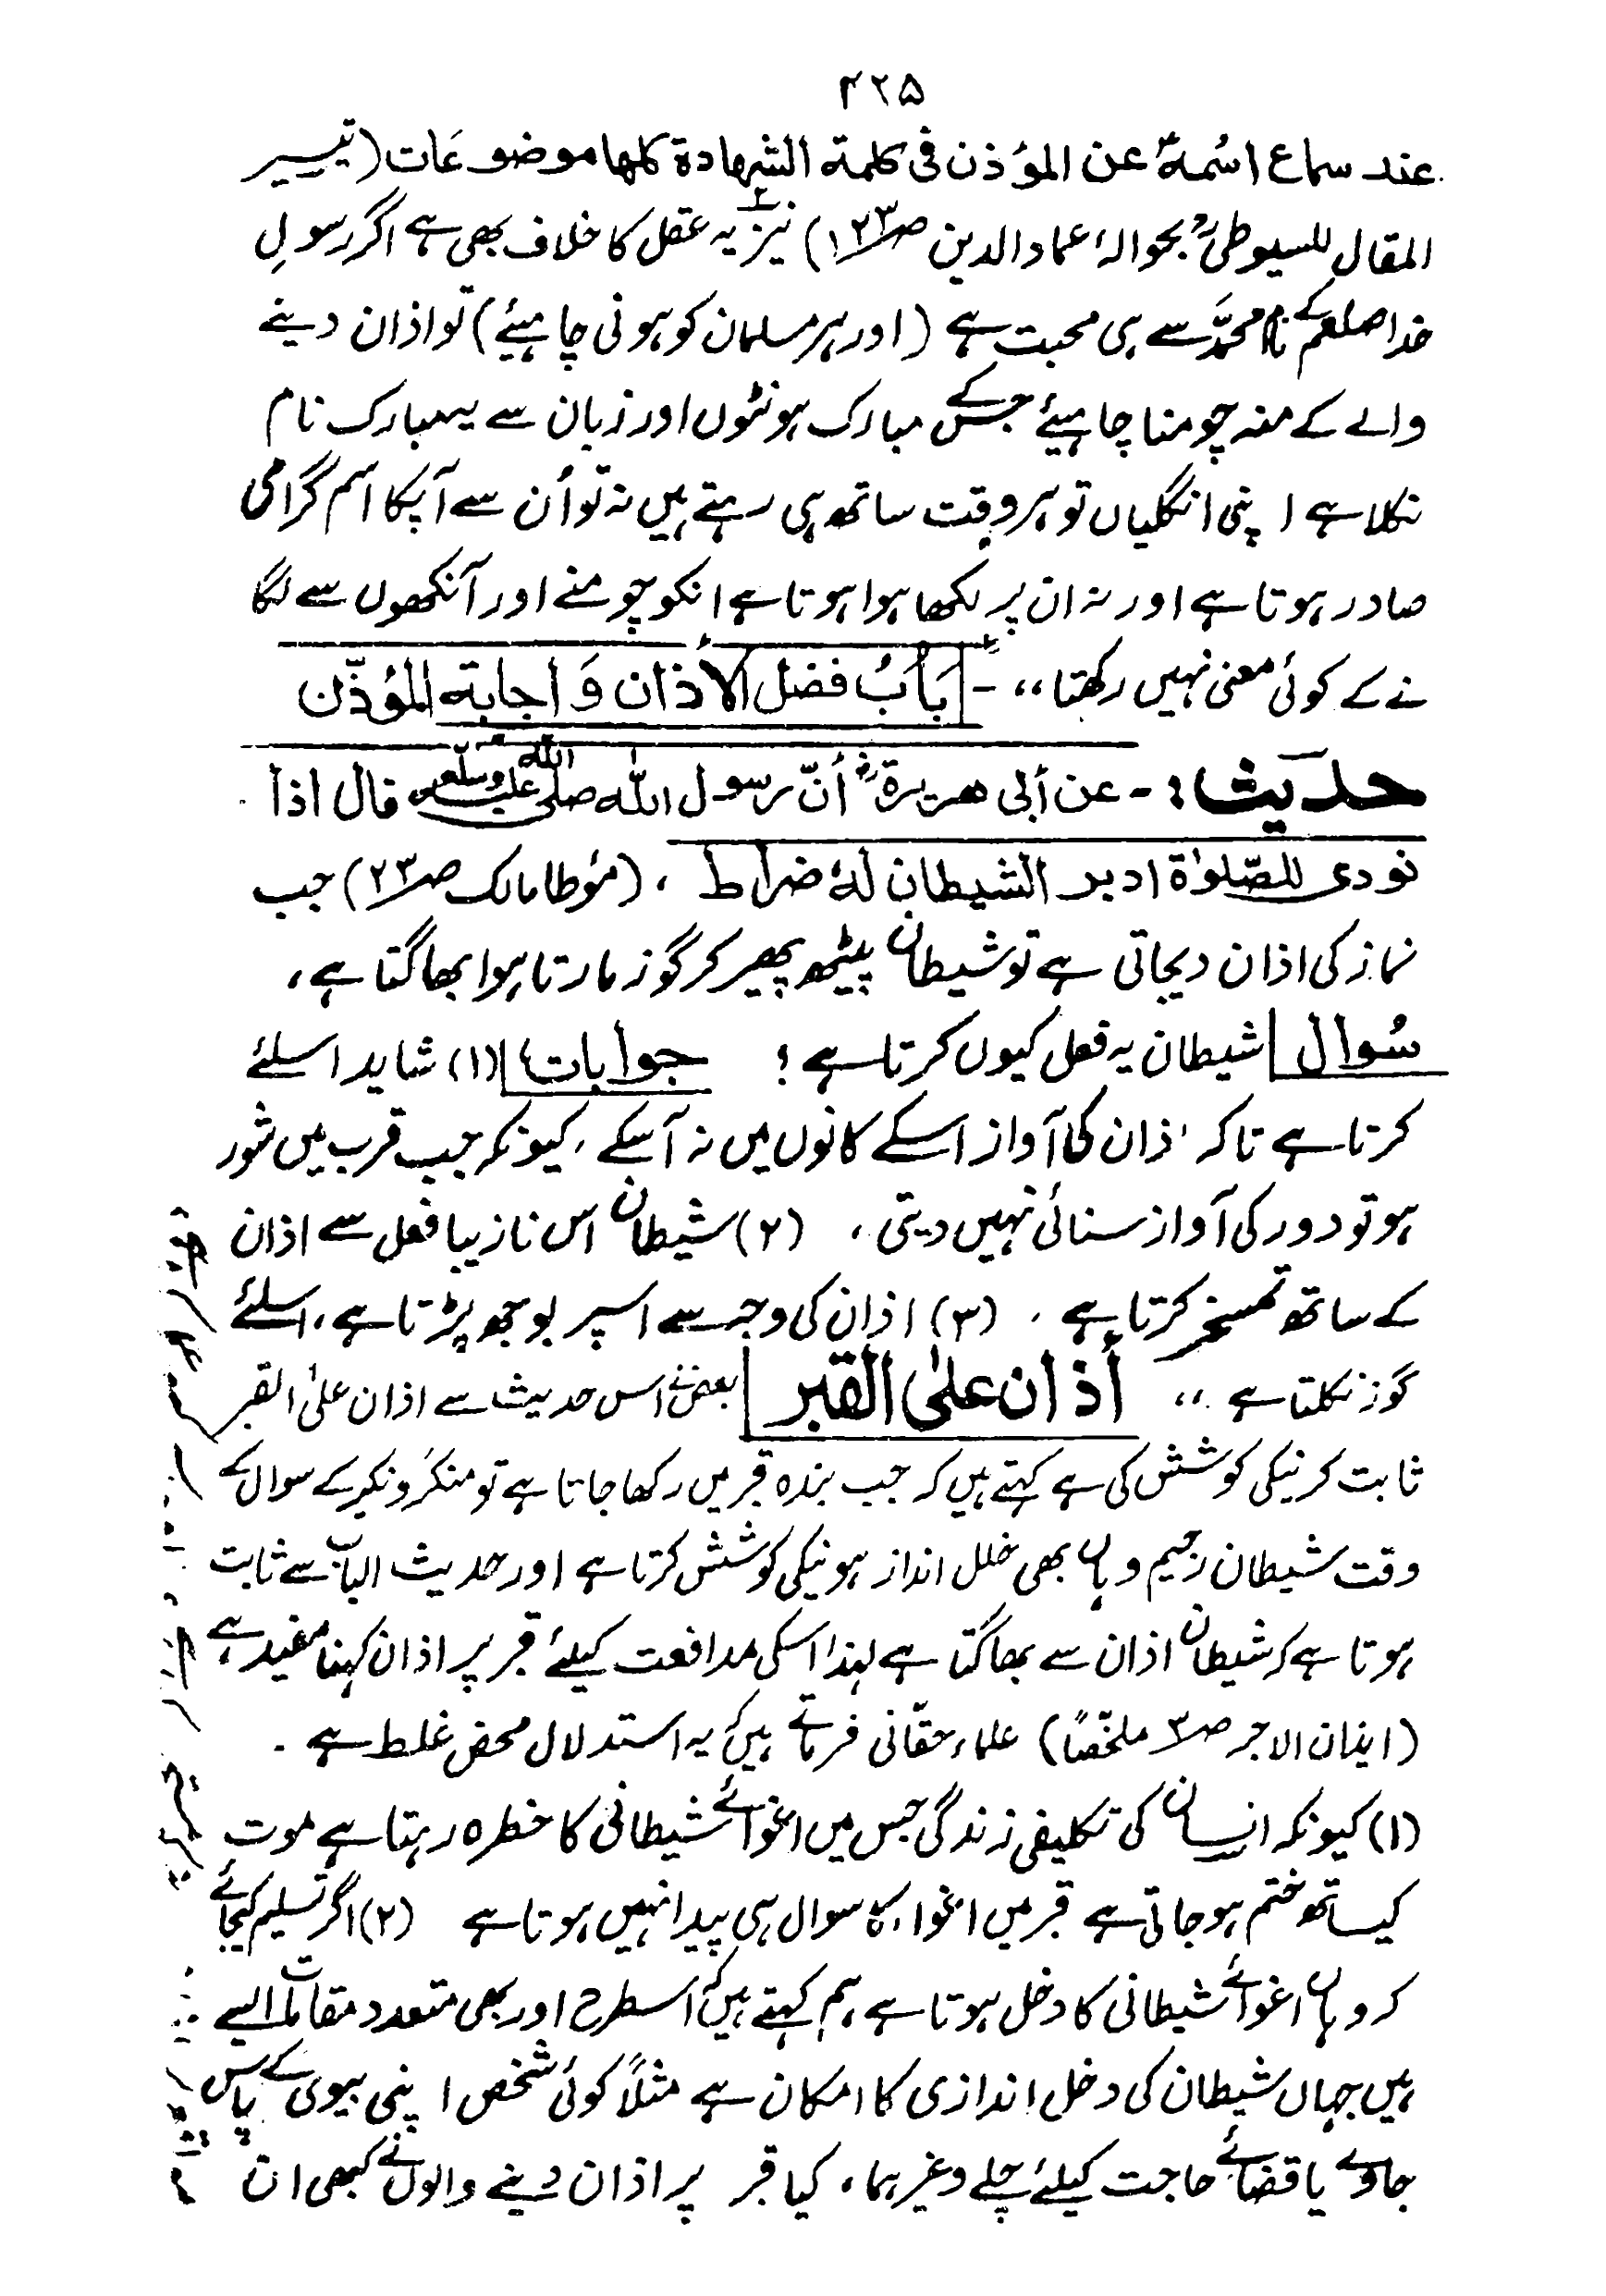 ۴۲۵
عند سماع اسمہٗ عن المؤذن فی کلمة الشہادة کلها موضوعات (تیسیر
المقال للسیوطیؒ بحوالۂ عماد الدین صـ۱۲۳) نیز یہ عقل کا خلاف بھی ہے اگر رسولِ
خدا صلعم کے نام محمدؐ سے ہی محبت ہے (اور ہر مسلمان کو ہونی چاہیئے) تو اذان دینے
والے کے منہ چومنا چاہیئے جس کے مبارک ہونٹوں اور زبان سے یہ مبارک نام
نکلا ہے اپنی انگلیاں تو ہر وقت ساتھ ہی رہتے ہیں نہ تو اُن سے آپکا اسم گرامی
صادر ہوتا ہے اور نہ ان پر لکھا ہوا ہوتا ہے انکو چومنے اور آنکھوں سے لگا
نے کے کوئی معنی نہیں رکھتا ،، - بَابُ فضل الأذان وَ اجابة المؤذّن
حدیث :- عن أبی هریرةؓ أنّ رسول اللّٰه صلی اللّٰه علیه وسلم قال اذا
نودی للصّلوٰة ادبر الشیطان لهٗ ضراط ، (مؤطا مالک صـ۲۳) جب
نماز کی اذان دیجاتی ہے تو شیطان پیٹھ پھیر کر گوز مارتا ہوا بھاگتا ہے ،
سُوال شیطان یہ فعل کیوں کرتا ہے ؟ جوابات (۱) شاید اسلئے
کرتا ہے تاکہ اذان کی آواز اسکے کانوں میں نہ آسکے ، کیونکہ جب قرب میں شور
ہو تو دور کی آواز سنائی نہیں دیتی ، (۲) شیطان اس نازیبا فعل سے اذان
کے ساتھ تمسخر کرتا ہے ، (۳) اذان کی وجہ سے اسپر بوجھ پڑتا ہے ، اسلئے
گوز نکلتا ہے ،، أذان علیٰ القبر بعض نے اس حدیث سے اذان علیٰ القبر
ثابت کرنیکی کوشش کی ہے کہتے ہیں کہ جب بندہ قبر میں رکھا جاتا ہے تو منکر ونکیر کے سوال کے
وقت شیطان رجیم وہاں بھی خلل انداز ہونیکی کوشش کرتا ہے اور حدیث الباب سے ثابت
ہوتا ہے کہ شیطان اذان سے بھاگتا ہے لہٰذا اسکی مدافعت کیلئے قبر پر اذان کہنا مفید ہے
(ایذان الاجر صـ۳ ملخّصاً) علماء حقّانی فرماتے ہیں کہ یہ استدلال محض غلط ہے .
(۱) کیونکہ انسان کی تکلیفی زندگی جس میں اغوائے شیطانی کا خطرہ رہتا ہے موت
کیساتھ ختم ہوجاتی ہے قبر میں اغواء کا سوال ہی پیدا نہیں ہوتا ہے (۲) اگر تسلیم کیجائے
کہ وہاں اغوائے شیطانی کا دخل ہوتا ہے ہم کہتے ہیں کہ اسطرح اور بھی متعدد مقامات ایسے
ہیں جہاں شیطان کی دخل اندازی کا امکان ہے مثلاً کوئی شخص اپنی بیوی کے پاس
جاوے یا قضائے حاجت کیلئے چلے وغیرہما ، کیا قبر پر اذان دینے والوں نے کبھی ان